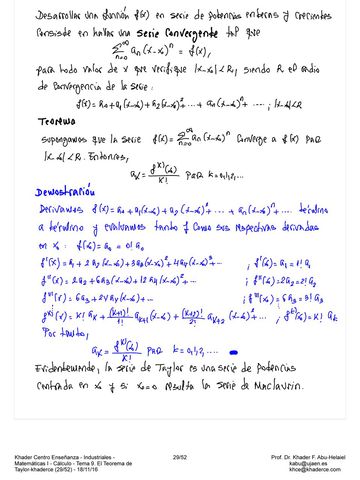 Desarrollar una función f(x) en serie de potencias enteras y crecientes
consiste en hallar una serie convergente tal que
∑_{n=0}^{∞} a_n (x-x_0)^n = f(x),
para todo valor de x que verifique |x-x_0| < R, siendo R el radio
de convergencia de la serie:
f(x) = a_0 + a_1(x-x_0) + a_2(x-x_0)^2 + ... + a_n(x-x_0)^n + ... ; |x-x_0| < R
Teorema
Supongamos que la serie f(x) = ∑_{n=0}^{∞} a_n (x-x_0)^n converge a f(x) para
|x-x_0| < R. Entonces,
a_k = f^{k)}(x_0) / k! para k=0,1,2,...
Demostración
Derivamos f(x) = a_0 + a_1(x-x_0) + a_2(x-x_0)^2 + ... + a_n(x-x_0)^n + ... término
a término y evaluamos tanto f como sus respectivas derivadas
en x_0: f(x_0) = a_0 = 0! a_0
f'(x) = a_1 + 2a_2(x-x_0) + 3a_3(x-x_0)^2 + 4a_4(x-x_0)^3 + ... ; f'(x_0) = a_1 = 1! a_1
f''(x) = 2a_2 + 6a_3(x-x_0) + 12a_4(x-x_0)^2 + ... ; f''(x_0) = 2a_2 = 2! a_2
f'''(x) = 6a_3 + 24a_4(x-x_0) + ... ; f'''(x_0) = 6a_3 = 3! a_3
f^{k)}(x) = k! a_k + (k+1)!/1! a_{k+1}(x-x_0) + (k+2)!/2! a_{k+2}(x-x_0)^2 + ... ; f^{k)}(x_0) = k! a_k
Por tanto,
a_k = f^{k)}(x_0) / k! para k=0,1,2,....
Evidentemente, la serie de Taylor es una serie de potencias
centrada en x_0 y si x_0=0 resulta la serie de Maclaurin.
Khader Centro Enseñanza - Industriales -
Matemáticas I - Cálculo - Tema 9. El Teorema de
Taylor-khaderce (29/52) - 18/11/16
29/52
Prof. Dr. Khader F. Abu-Helaiel
kabu@ujaen.es
khce@khaderce.com